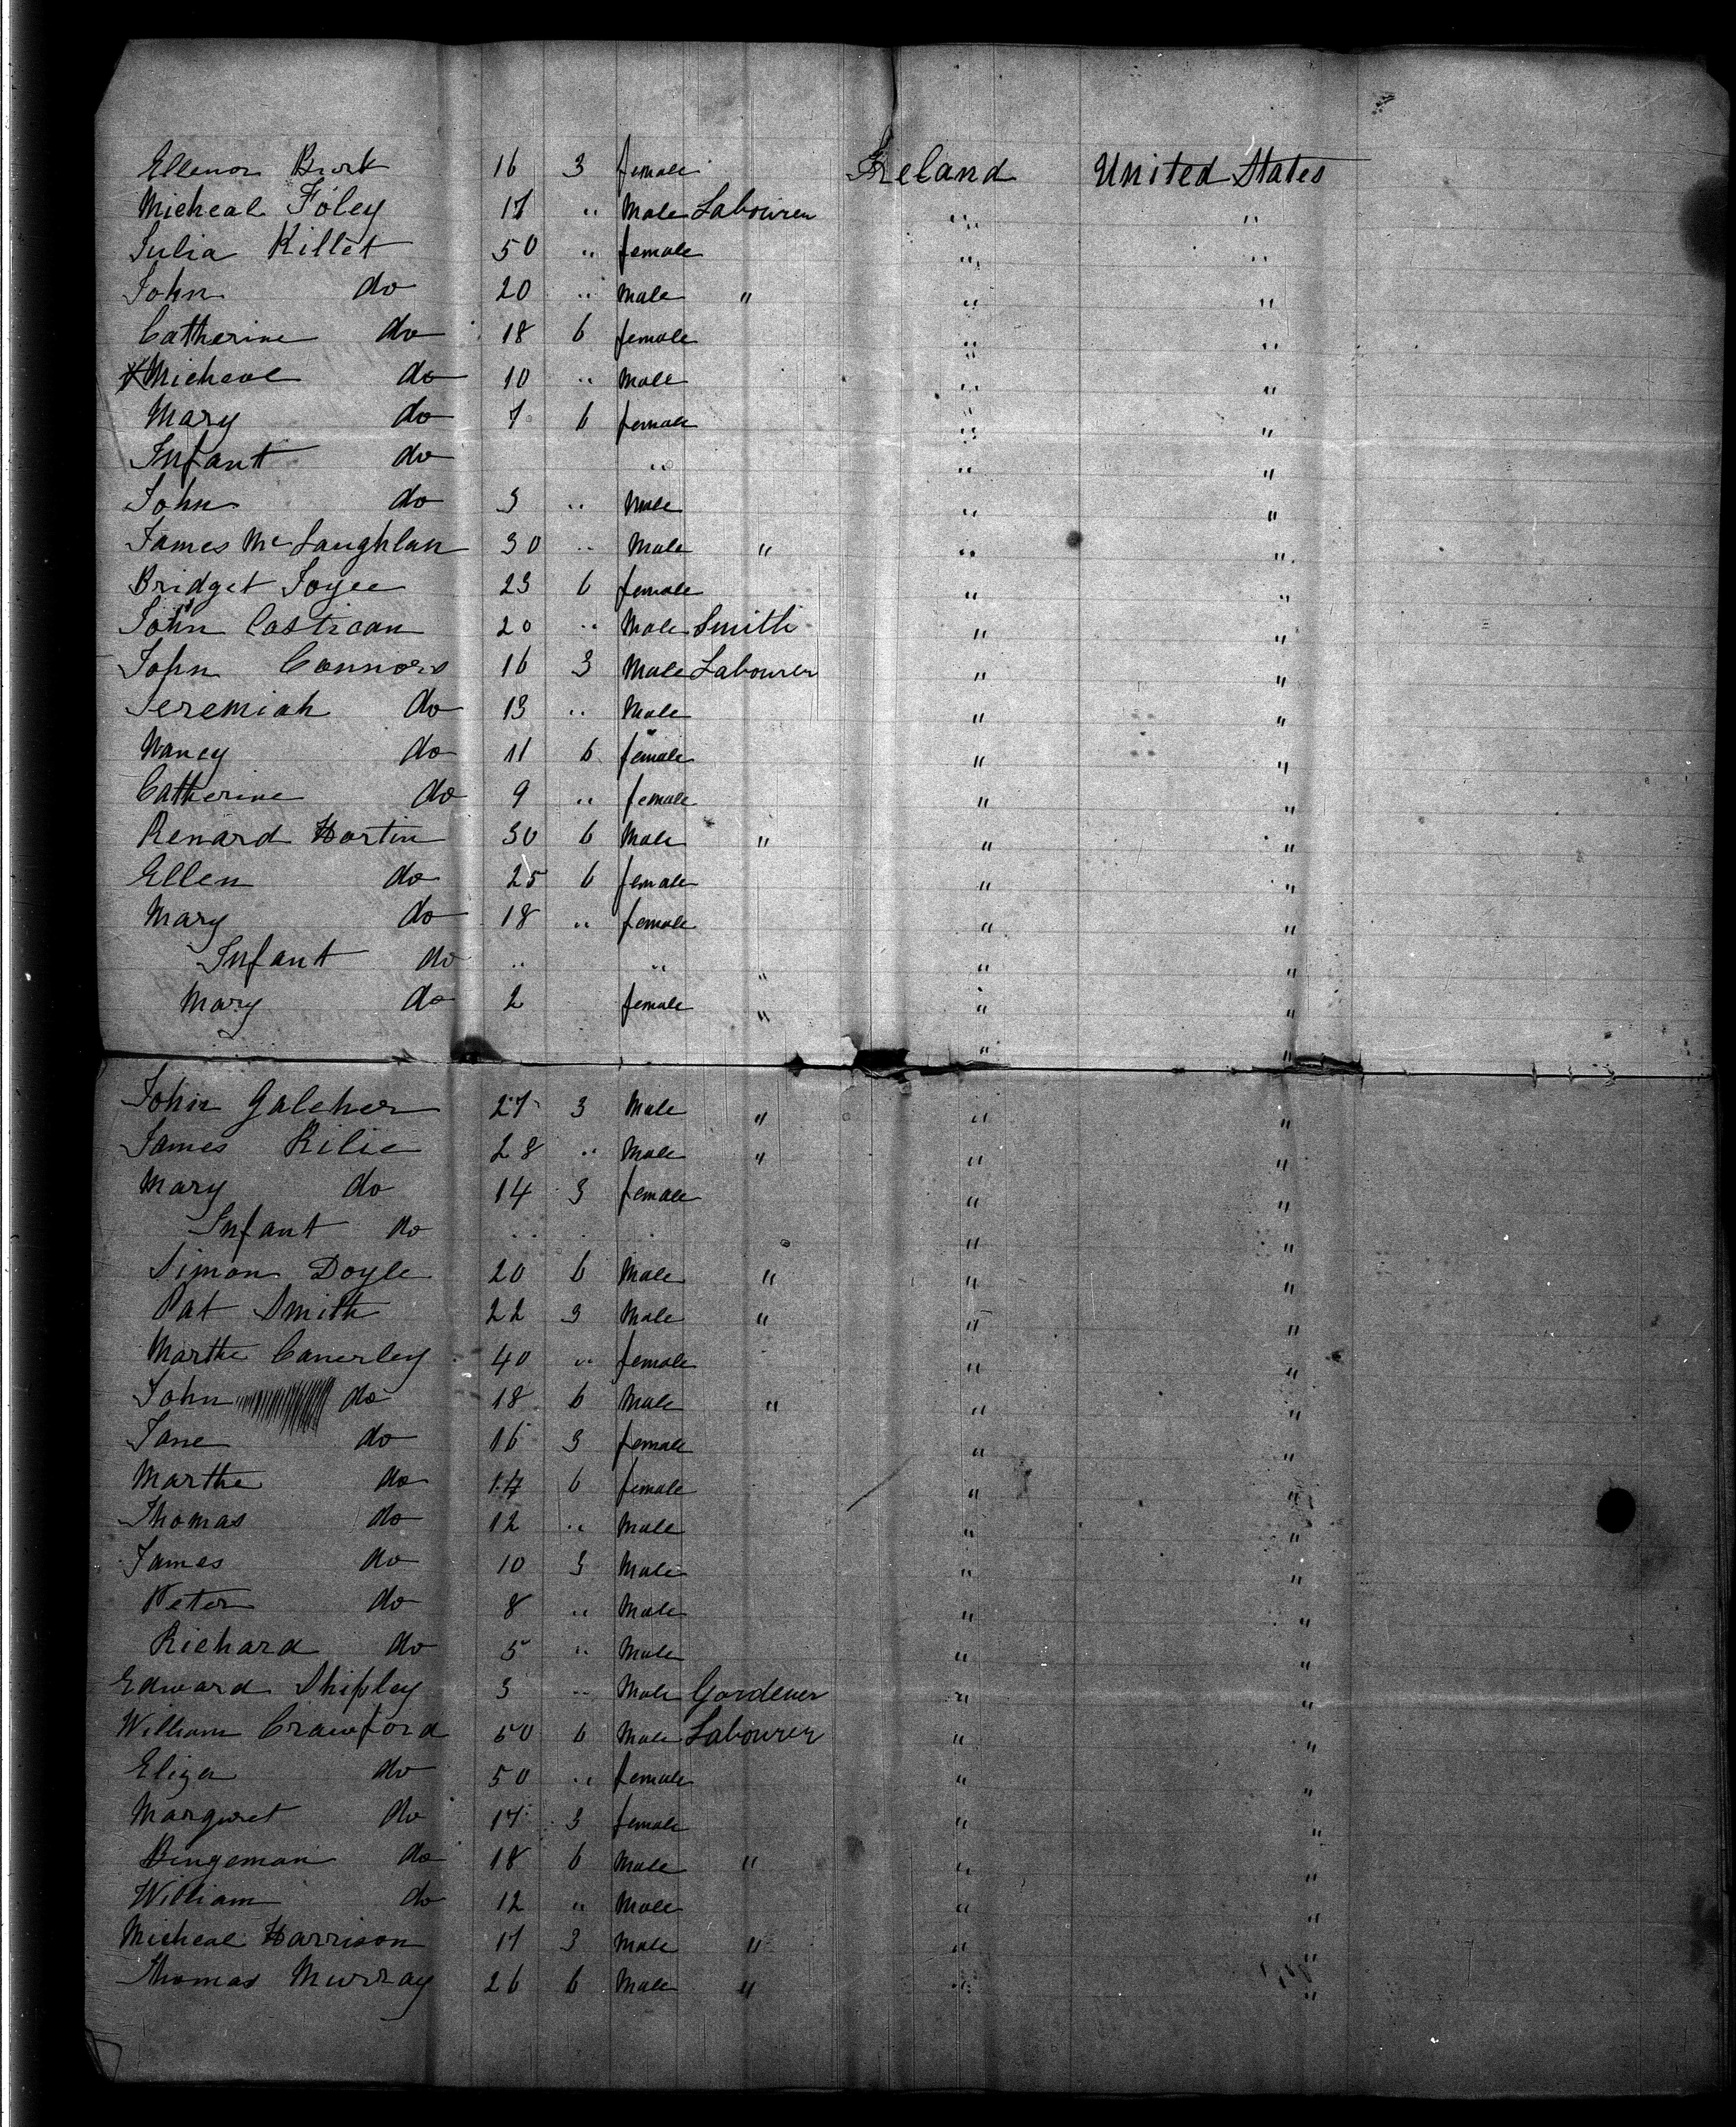 Ellenor Burk 16 3 female Ireland United States
Micheal Foley 17 " Male Labourer " "
Julia Killet 50 " female " "
John do 20 " Male " " "
Catherine do 18 6 female " "
Micheal do 10 " Male " "
Mary do 7 6 female " "
Infant do " " "
John do 3 " Male " "
James McLaughlan 30 " Male " " "
Bridget Joyce 23 6 female " "
John Costican 20 " Male Smith " "
John Connors 16 3 Male Labourer " "
Jeremiah do 13 " Male " "
Nancy do 11 6 female " "
Catherine do 9 " female " "
Renard Hartin 30 6 Male " " "
Ellen do 25 6 female " "
Mary do 18 " female " "
Infant do " " " " "
Mary do 2 female " " "
" "
John Galcher 27 3 Male " " "
James Rilie 28 " Male " " "
Mary do 14 3 female " "
Infant do " " "
Simon Doyle 20 6 Male " " "
Pat Smith 22 3 Male " " "
Marthe Canerley 40 " female " "
John do 18 6 Male " " "
Jane do 16 3 female " "
Marthe do 14 6 female " "
Thomas do 12 " Male " "
James do 10 3 Male " "
Peter do 8 " Male " "
Richard do 5 " Male " "
Edward Shipley 3 " Male Gardener " "
William Crawford 50 6 Male Labourer " "
Eliza do 50 " female " "
Margaret do 17 3 female " "
Bingeman do 18 6 Male " " "
William do 12 " Male " "
Micheal Harrison 17 3 Male " " "
Thomas Murray 26 6 Male " " "